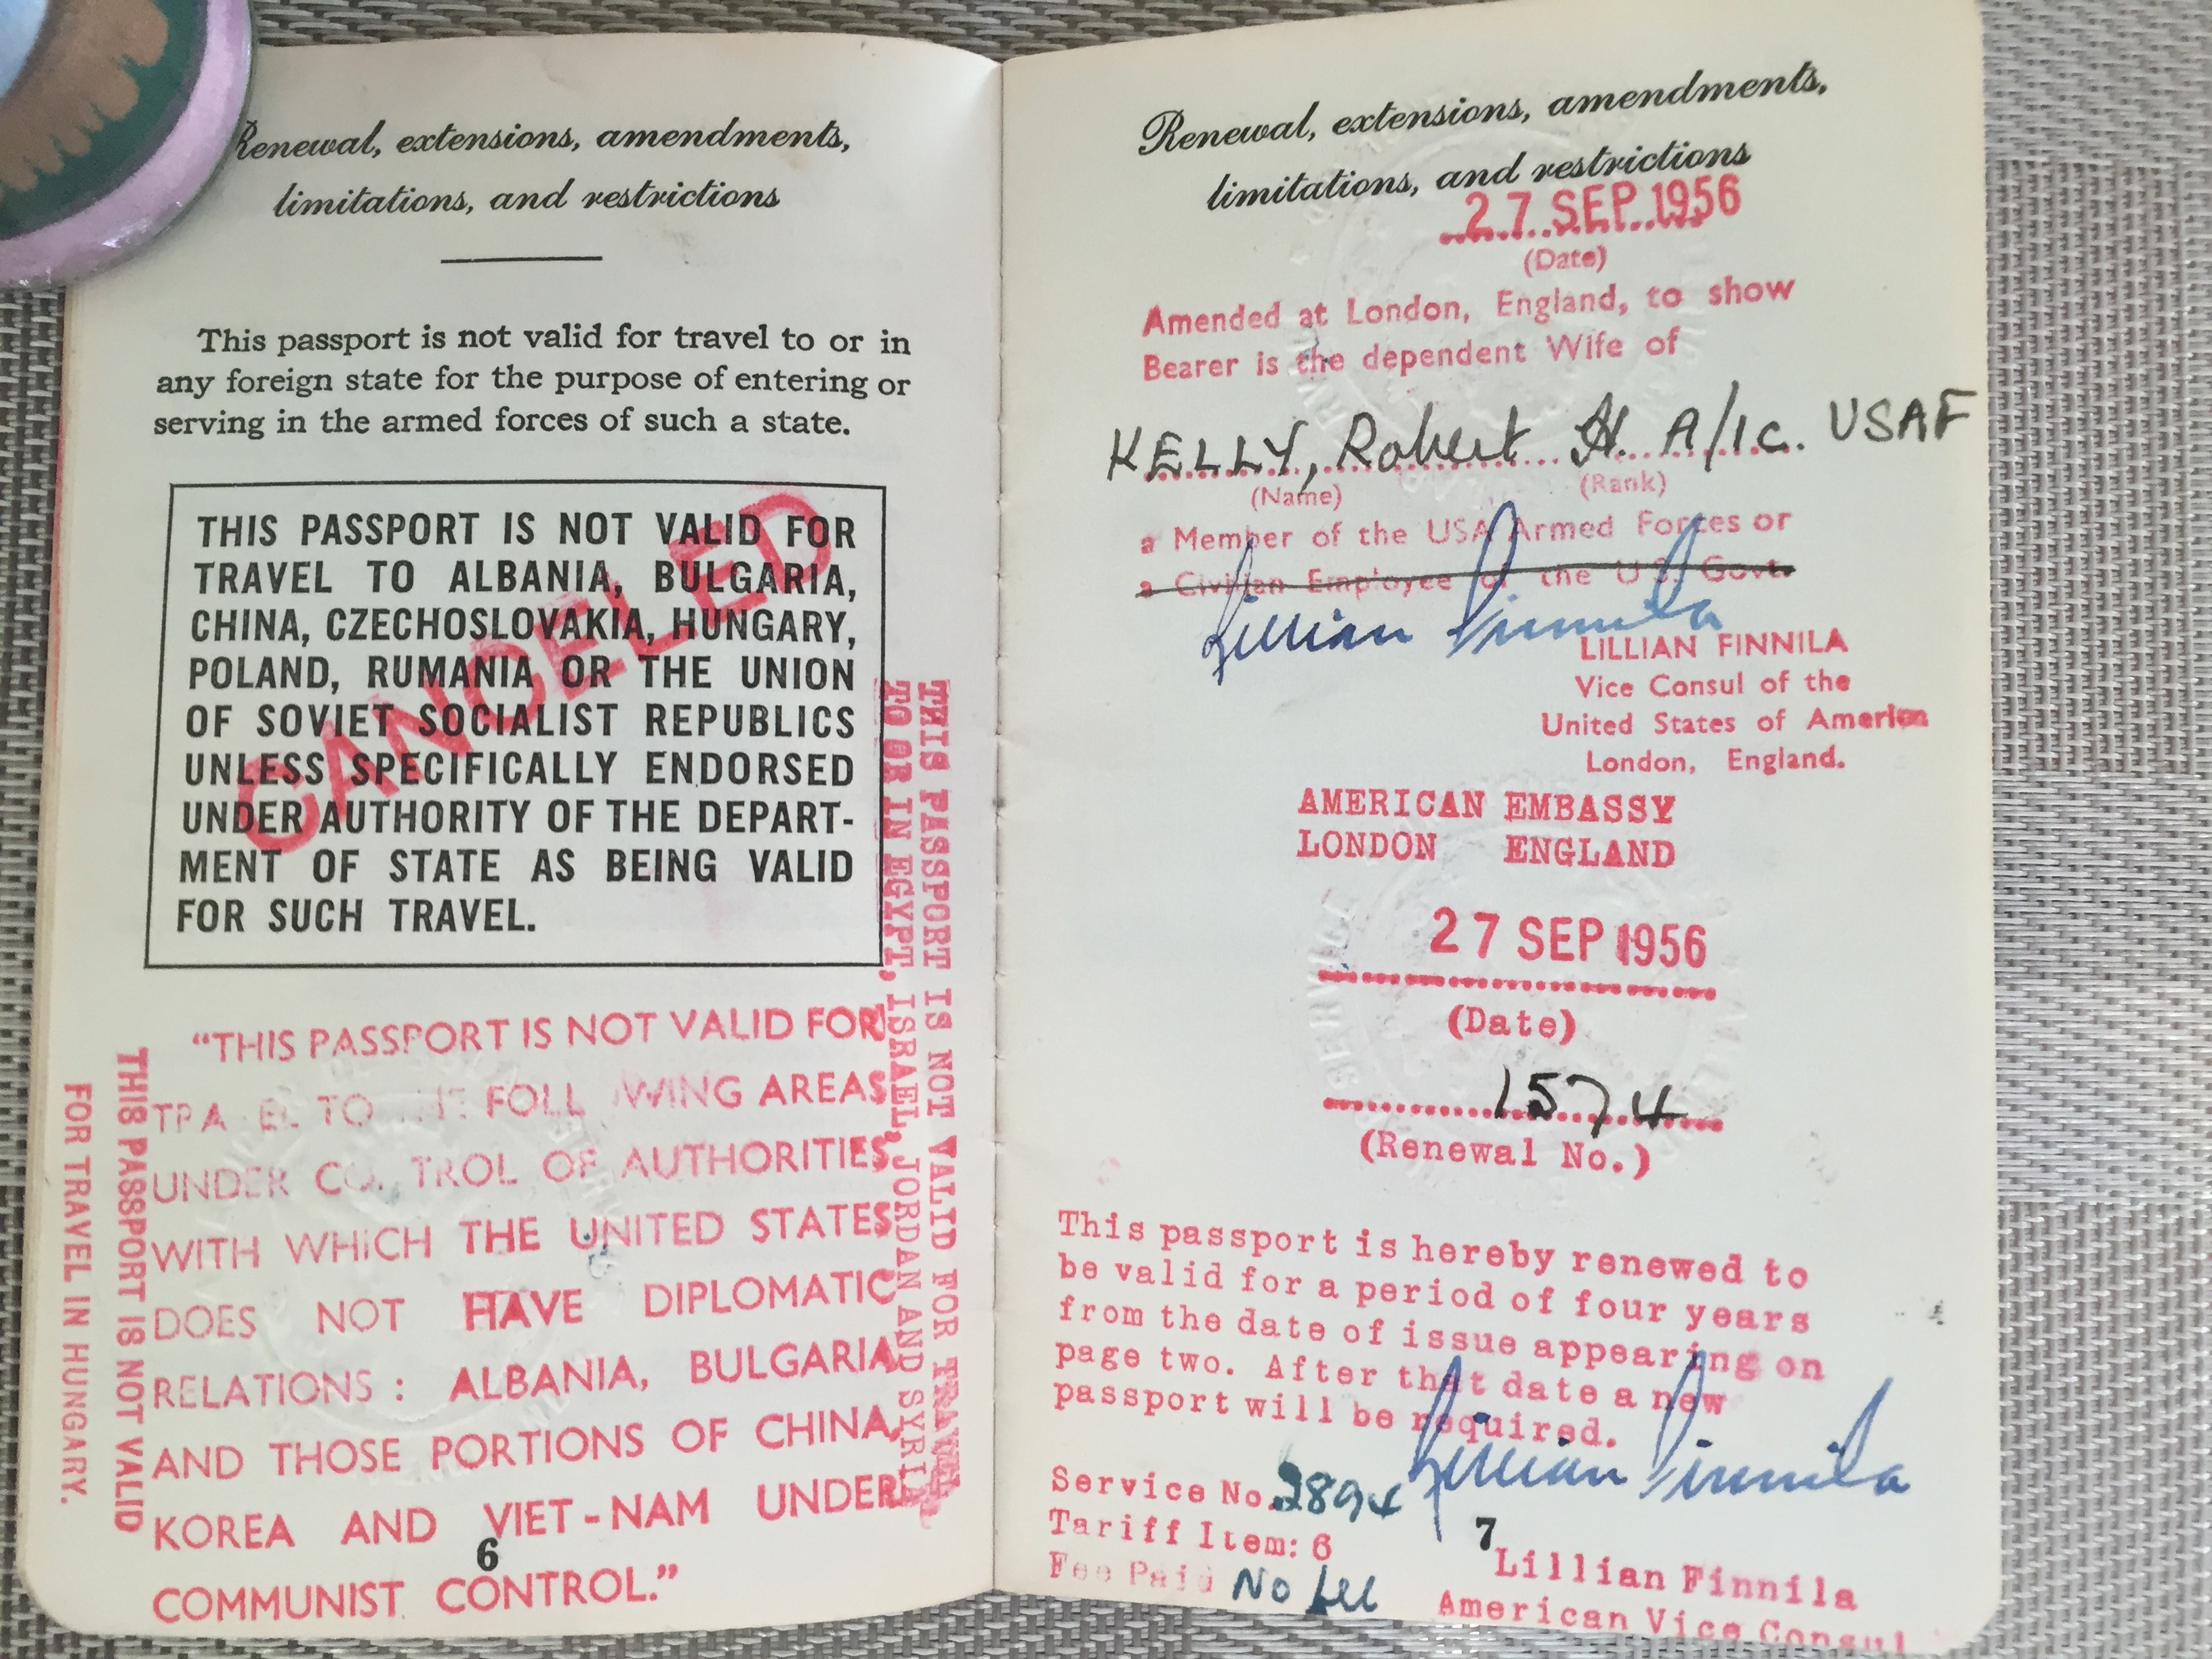 Renewal, extensions, amendments,
limitations, and restrictions
This passport is not valid for travel to or in
any foreign state for the purpose of entering or
serving in the armed forces of such a state.
THIS PASSPORT IS NOT VALID FOR
TRAVEL TO ALBANIA, BULGARIA,
CHINA, CZECHOSLOVAKIA, HUNGARY,
POLAND, RUMANIA OR THE UNION
OF SOVIET SOCIALIST REPUBLICS
UNLESS SPECIFICALLY ENDORSED
UNDER AUTHORITY OF THE DEPART-
MENT OF STATE AS BEING VALID
FOR SUCH TRAVEL.
CANCELED
"THIS PASSPORT IS NOT VALID FOR
TRAVEL TO THE FOLLOWING AREAS
UNDER CONTROL OF AUTHORITIES
WITH WHICH THE UNITED STATES
DOES NOT HAVE DIPLOMATIC
RELATIONS : ALBANIA, BULGARIA
AND THOSE PORTIONS OF CHINA,
KOREA AND VIET-NAM UNDER
COMMUNIST CONTROL."
THIS PASSPORT IS NOT VALID
FOR TRAVEL IN HUNGARY.
THIS PASSPORT IS NOT VALID FOR TRAVEL
TO OR IN EGYPT, ISRAEL, JORDAN AND SYRIA
6
Renewal, extensions, amendments,
limitations, and restrictions
27 SEP 1956
(Date)
Amended at London, England, to show
Bearer is the dependent Wife of
KELLY, Robert H. A/1c. USAF
(Name) (Rank)
a Member of the USA Armed Forces or
a Civilian Employee of the U S Govt.
Lillian Finnila
LILLIAN FINNILA
Vice Consul of the
United States of America
London, England.
AMERICAN EMBASSY
LONDON ENGLAND
27 SEP 1956
(Date)
1574
(Renewal No.)
This passport is hereby renewed to
be valid for a period of four years
from the date of issue appearing on
page two. After that date a new
passport will be required.
Lillian Finnila
Service No. 2894
Tariff Item: 6
Fee Paid No fee
7
Lillian Finnila
American Vice Consul